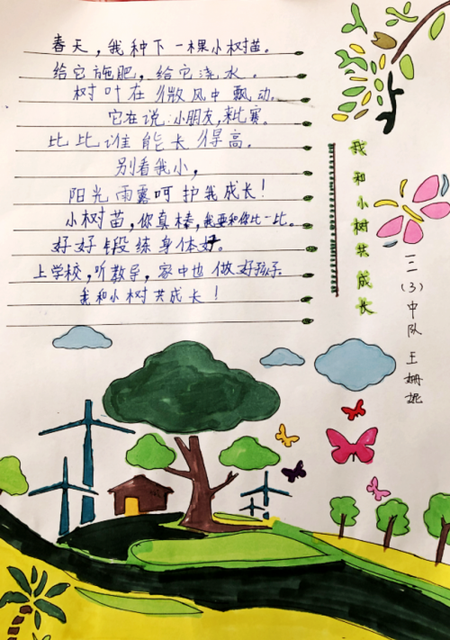 春天，我种下一棵小树苗。
给它施肥，给它浇水。
树叶在微风中飘动。
它在说：小朋友，来比赛。
比比谁能长得高。
别看我小，
阳光雨露呵护我成长！
小树苗，你真棒，我要和你比一比。
好好锻练身体好。
上学校，听教导，家中也做好孩子
我和小树共成长！
我和小树共成长
三（3）中队 王姗妮